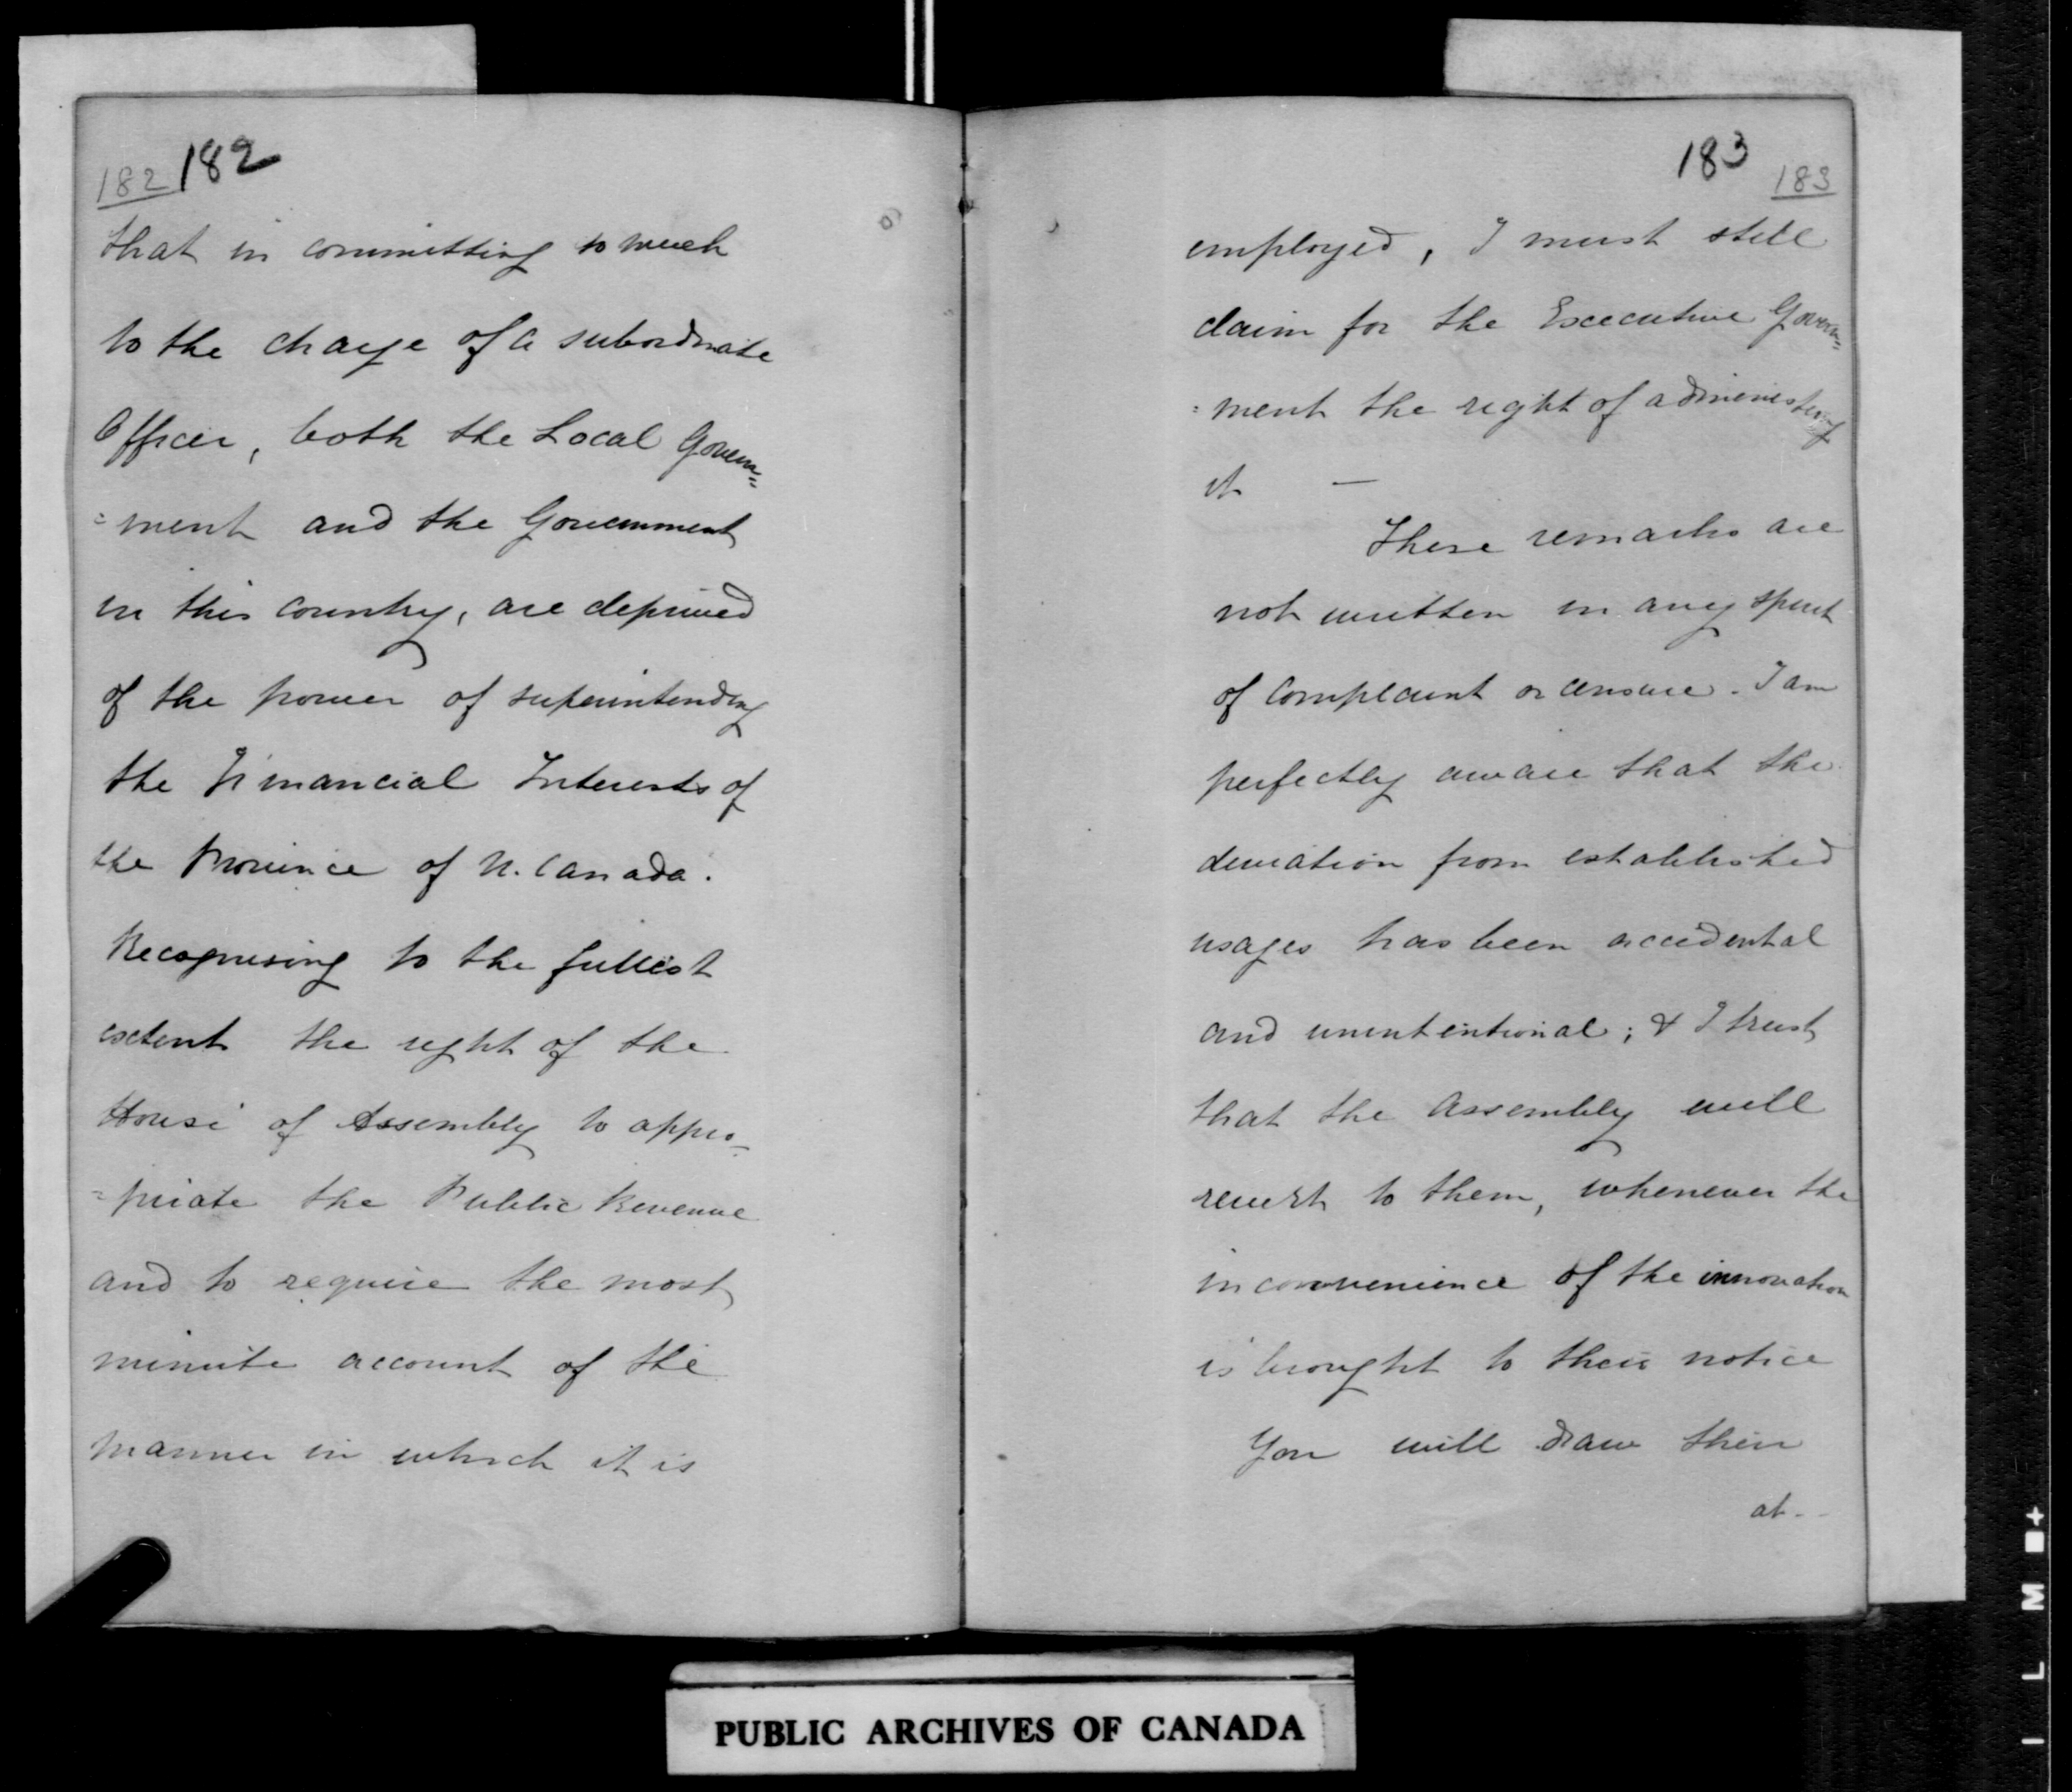 182 182
that in committing so much
to the charge of a subordinate
Officer, both the Local Govern=
=ment and the Government
in this country, are deprived
of the power of superintending
the Financial Interests of
the Province of U. Canada.
Recognising to the fullest
extent the right of the
House of Assembly to appro-
=priate the Public Revenue
and to require the most
minute account of the
manner in which it is
183 183
employed, I must still
claim for the Executive Govern=
=ment the right of administering
it —
These remarks are
not written in any spirit
of complaint or censure. I am
perfectly aware that the
deviation from established
usages has been accidental
and unintentional; & I trust
that the Assembly will
revert to them, whenever the
inconvenience of the innovation
is brought to their notice
You will draw their
at-
PUBLIC ARCHIVES OF CANADA
I L M